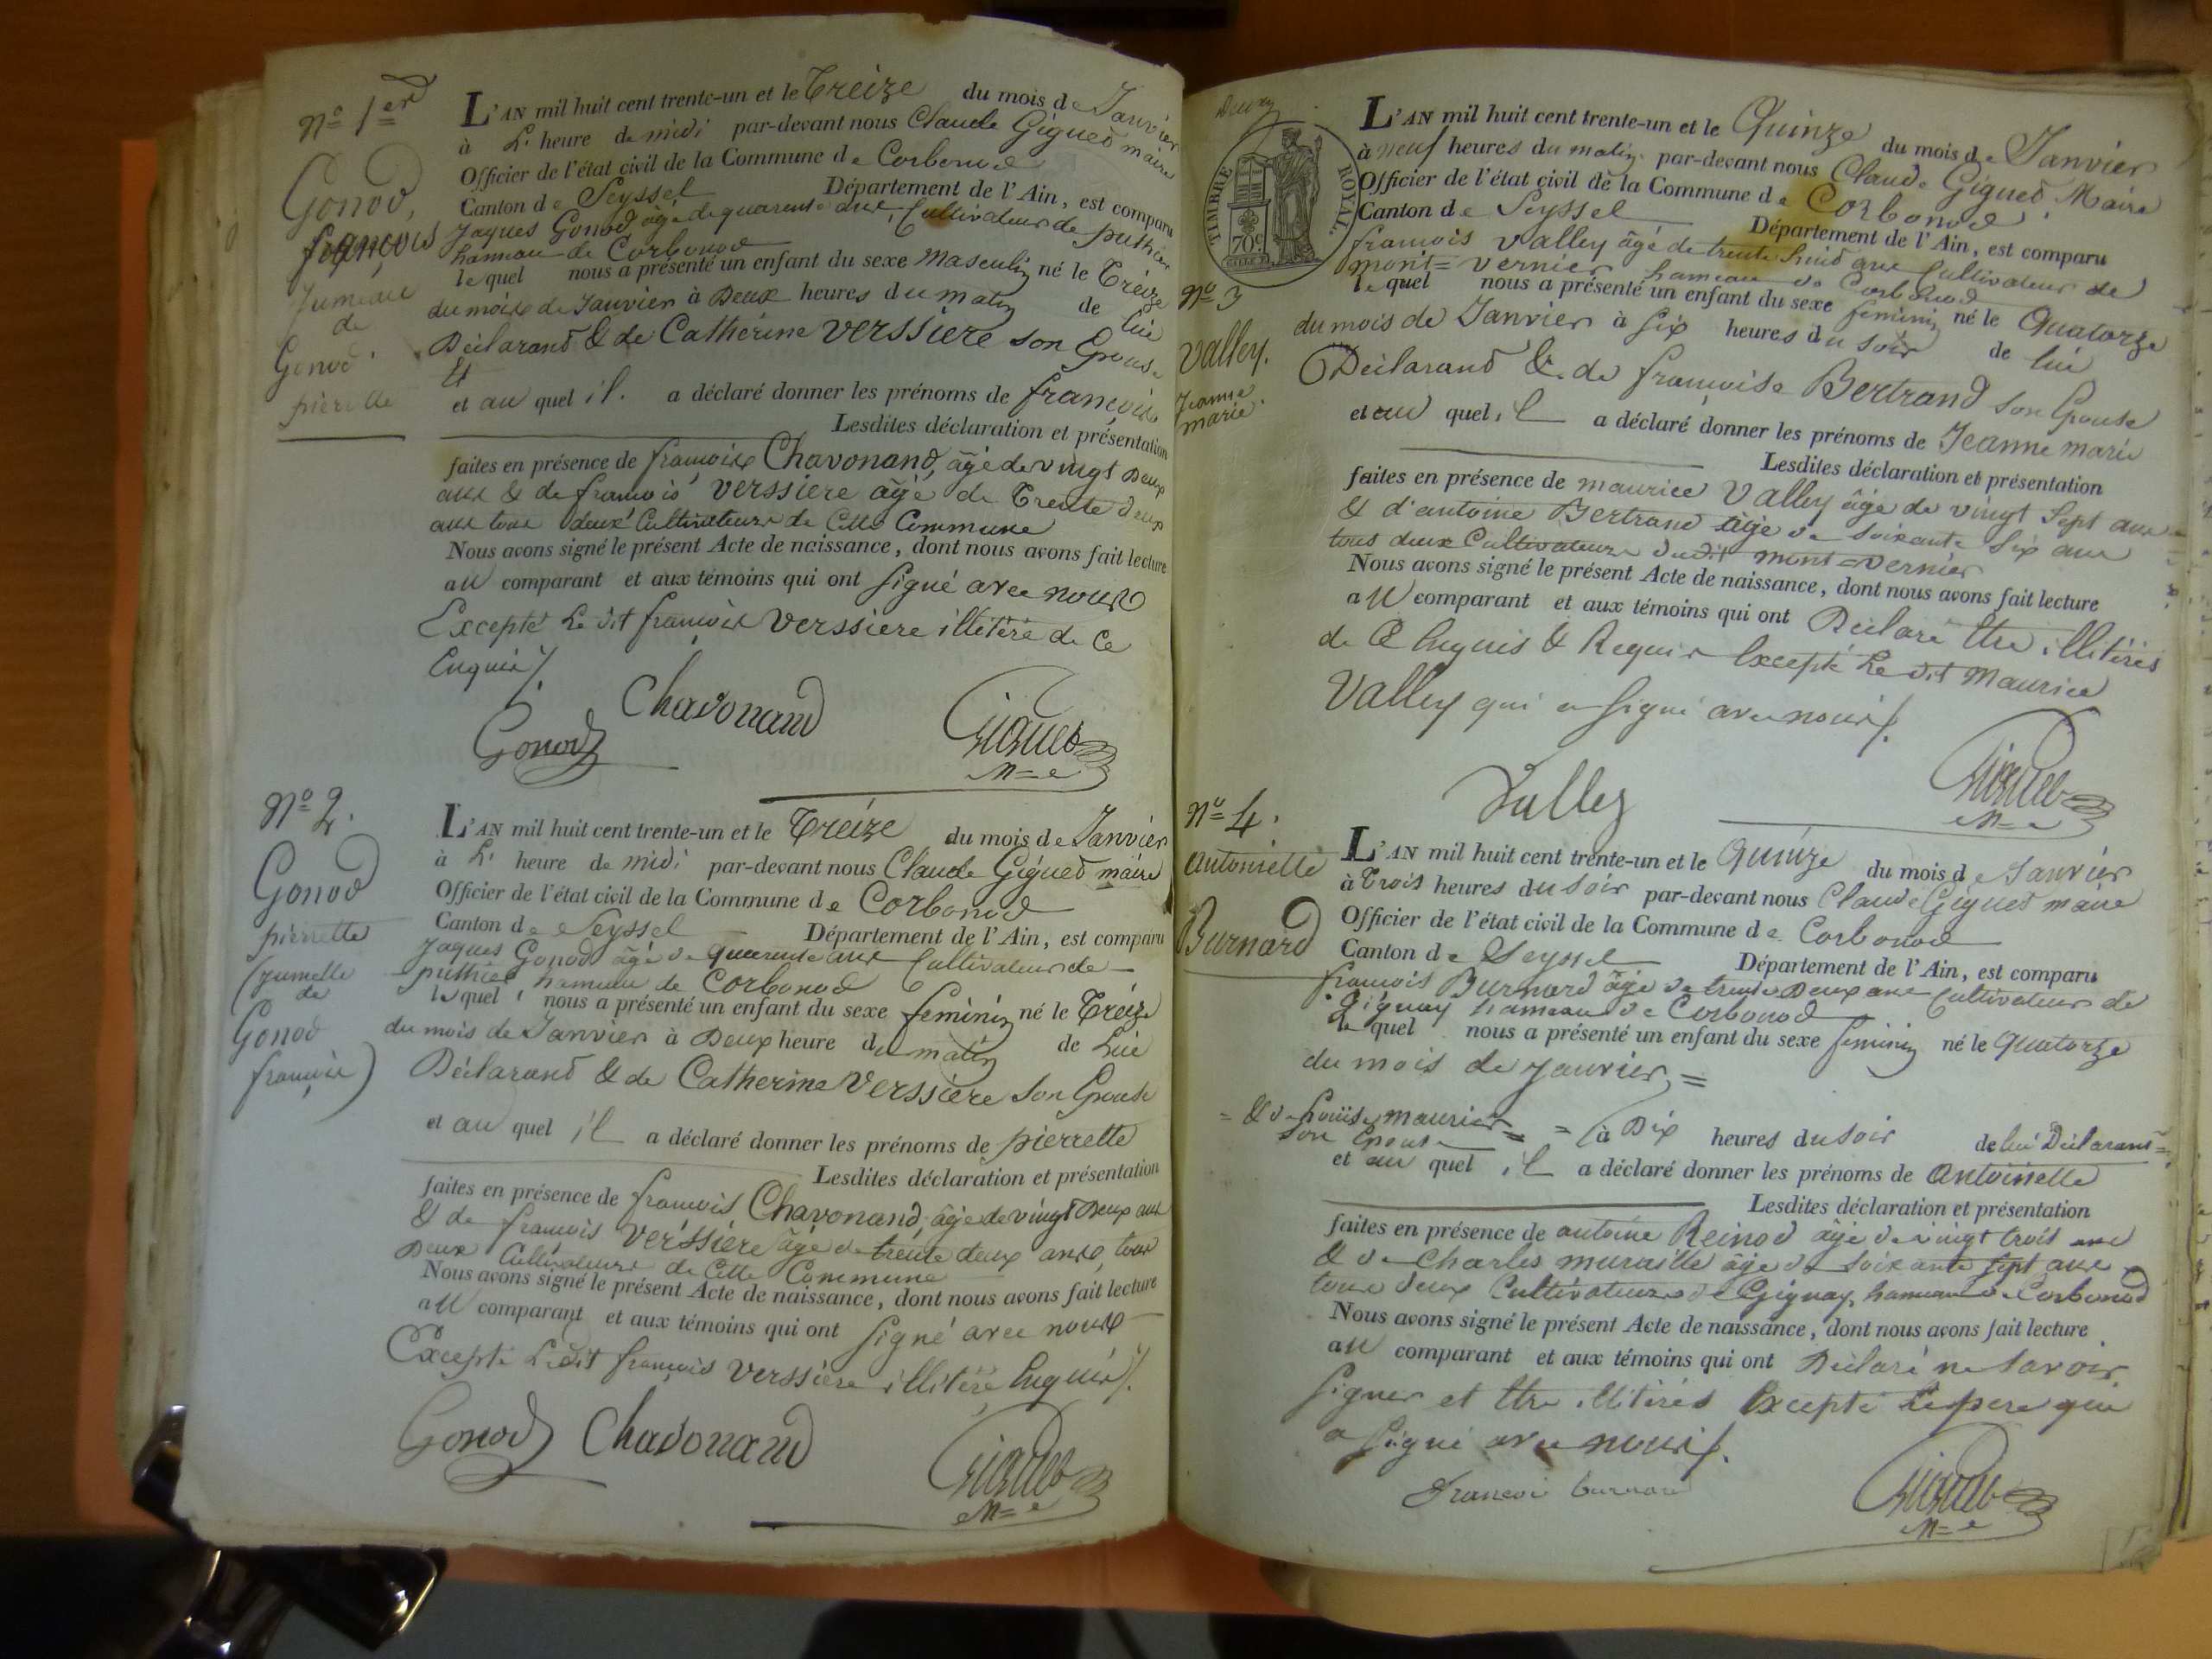 Nº 1er
Gonod,
françois
Jumeau
de
Gonod
pierrette
L'AN mil huit cent trente-un et le Treize du mois de Janvier
à L' heure de midi par-devant nous Claude Gigued maire
Officier de l'état civil de la Commune de Corbonod
Canton de Seyssel Département de l'Ain, est comparu
Jaques Gonod âgé de quarente ans, Cultivateur de puthier
hameau de Corbonod
lequel nous a présenté un enfant du sexe masculin né le Treize
du mois de Janvier à Deux heures du matin de lui
Déclarand & de Catherine verssiere son Epouse
et au quel il. a déclaré donner les prénoms de françois
Lesdites déclaration et présentation
faites en présence de françois Chavonand, âgé de vingt Deux
ans & de francois verssiere âgé de Trente deux
ans tous deux Cultivateurs de Cette Commune
Nous avons signé le présent Acte de naissance, dont nous avons fait lecture
au comparant et aux témoins qui ont signé avec nous
Excepté Le dit françois verssiere illitéré de Ce
Enquis/.
Gonod Chavonand Gigued
M=e
Nº 2.
Gonod
pierrette
(jumelle
de
Gonod
francois)
L'AN mil huit cent trente-un et le Treize du mois de Janvier
à L' heure de midi par-devant nous Claude Gigued maire
Officier de l'état civil de la Commune de Corbonod
Canton de Seyssel Département de l'Ain, est comparu
Jaques Gonod âgé de quarente ans Cultivateur de
puthier hameau de Corbonod
lequel nous a présenté un enfant du sexe féminin né le Treize
du mois de Janvier à Deux heure du matin de Lui
Déclarand & de Catherine verssiere son Epouse
et au quel il a déclaré donner les prénoms de pierrette
Lesdites déclaration et présentation
faites en présence de francois Chavonand, âgé de vingt Deux ans
& de francois verssiére âgé de trente deux ans, tous
Deux Cultivateurs de Cette Commune
Nous avons signé le présent Acte de naissance, dont nous avons fait lecture
au comparant et aux témoins qui ont signé avec nous
Excepté Ledit françois verssiere illitéré Enquis/.
Gonod Chavonand Gigued
M=e
Deux
TIMBRE ROYAL.
70c
Nº 3
Valley.
Jeanne
marie
L'AN mil huit cent trente-un et le Quinze du mois de Janvier
à neuf heures du matin par-devant nous Claude Gigued Maire
Officier de l'état civil de la Commune de Corbonod
Canton de Seyssel Département de l'Ain, est comparu
francois valley âgé de trente huit ans Cultivateur de
mont=vernier hameau de Corbonod
lequel nous a présenté un enfant du sexe féminin né le Quatorze
du mois de Janvier à six heures du soir de lui
Déclarand & de francoise Bertrand son Epouse
et au quel il a déclaré donner les prénoms de Jeanne marie
Lesdites déclaration et présentation
faites en présence de maurice Valley âgé de vingt sept ans
& d'antoine Bertrand âgé de soixante six ans
tous deux Cultivateurs dudit mont=vernier
Nous avons signé le présent Acte de naissance, dont nous avons fait lecture
au comparant et aux témoins qui ont Déclaré être illitérés
de Ce Enquis & Requis Excepté Le dit Maurice
Valley qui a signé avec nous/.
Valley Gigued
M=e
Nº 4.
antoinette
Burnard
L'AN mil huit cent trente-un et le Quinze du mois de Janvier
à Trois heures du soir par-devant nous Claude Gigued maire
Officier de l'état civil de la Commune de Corbonod
Canton de Seyssel Département de l'Ain, est comparu
francois Burnard âgé de trente Deux ans Cultivateur de
Gignay hameau de Corbonod
lequel nous a présenté un enfant du sexe féminin né le quatorze
du mois de janvier =
= & de Louise maurier = = à Dix heures du soir de lui Déclarant =
son Epouse
et au quel il a déclaré donner les prénoms de antoinette
Lesdites déclaration et présentation
faites en présence de antoine Reinod âgé de vingt trois ans
& de Charles muraille âgé de soixante sept ans
tous deux Cultivateurs de Gignay, hameau de Corbonod
Nous avons signé le présent Acte de naissance, dont nous avons fait lecture
au comparant et aux témoins qui ont Déclaré ne savoir
signer et être illitérés Excepté Le pere qui
a signé avec nous/.
francois burnard Gigued
M=e